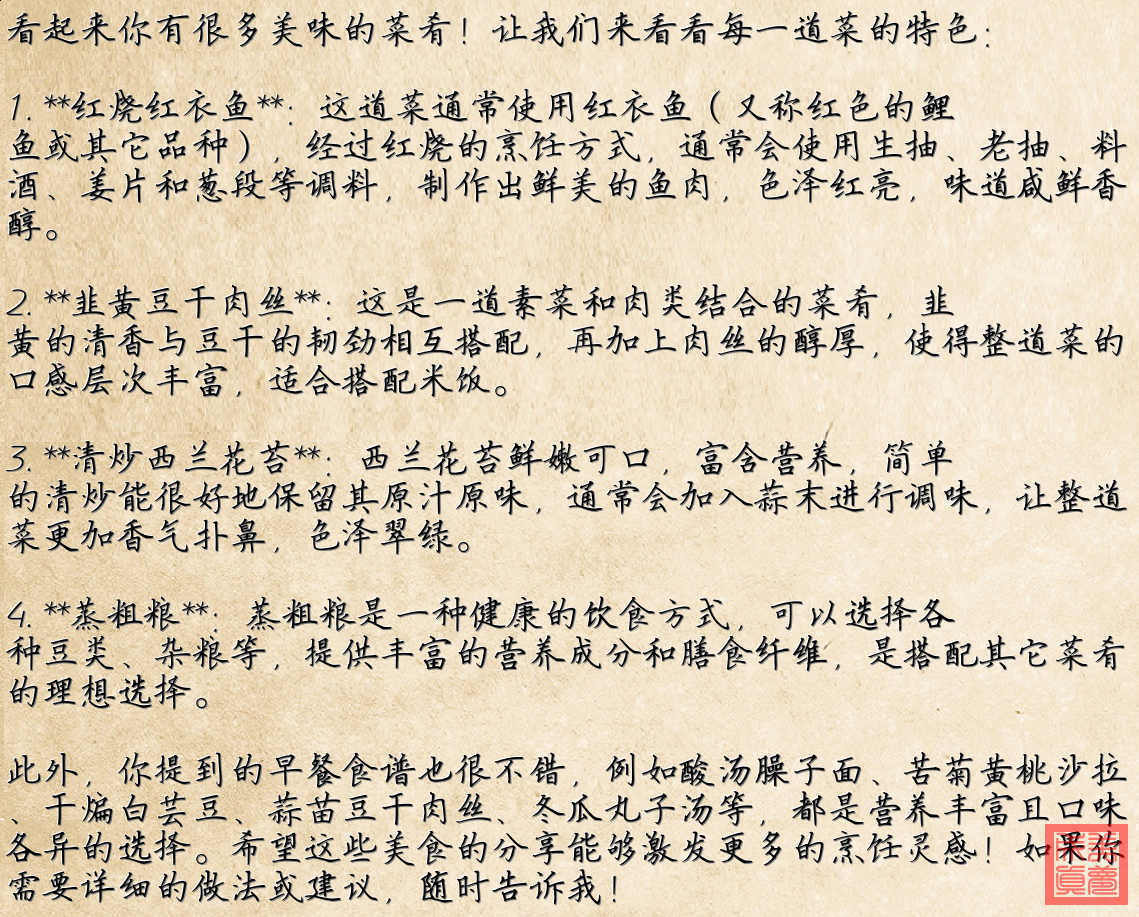 看起来你有很多美味的菜肴！让我们来看看每一道菜的特色：
1. **红烧红衣鱼**：这道菜通常使用红衣鱼（又称红色的鲤
鱼或其它品种），经过红烧的烹饪方式，通常会使用生抽、老抽、料
酒、姜片和葱段等调料，制作出鲜美的鱼肉，色泽红亮，味道咸鲜香
醇。
2. **韭黄豆干肉丝**：这是一道素菜和肉类结合的菜肴，韭
黄的清香与豆干的韧劲相互搭配，再加上肉丝的醇厚，使得整道菜的
口感层次丰富，适合搭配米饭。
3. **清炒西兰花苔**：西兰花苔鲜嫩可口，富含营养，简单
的清炒能很好地保留其原汁原味，通常会加入蒜末进行调味，让整道
菜更加香气扑鼻，色泽翠绿。
4. **蒸粗粮**：蒸粗粮是一种健康的饮食方式，可以选择各
种豆类、杂粮等，提供丰富的营养成分和膳食纤维，是搭配其它菜肴
的理想选择。
此外，你提到的早餐食谱也很不错，例如酸汤臊子面、苦菊黄桃沙拉
、干煸白芸豆、蒜苗豆干肉丝、冬瓜丸子汤等，都是营养丰富且口味
各异的选择。希望这些美食的分享能够激发更多的烹饪灵感！如果你
需要详细的做法或建议，随时告诉我！